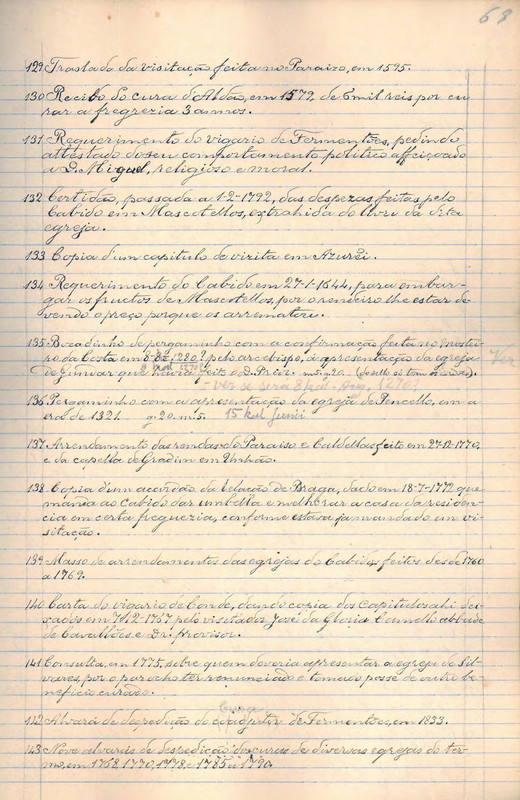 63
129 Traslado da visitação feita no Paraizo, em 1595.
130 Recibo do cura d'Aldão, em 1579, de 6 mil reis por cu
rar a fregrezia 3 annos.
131 Requerimento do vigario de Fermentões, pedindo
attestado do seu comportamento politico affeiçoado
a D. Miguel, religioso e moral.
132 Certidão, passada a 1-2-1792, das despezas feitas pelo
Cabido em Mascotellos, extrahida do livro da dita
egreja.
133 Copia d'um capitulo de vizita em Azurei.
134 Requerimento do Cabido em 27-1-1644, para embar-
gar os fructos de Mascotellos, por o rendeiro lhe estar de-
vendo o preço porque os arrematou.
135 Bocadinho de pergaminho com a confirmação feita no mostei
ro da Costa em 1280? pelo arcebispo, à apresentação da egreja
de Gondar que havia feito o D. Prior.
Ver
- ver se será 8 kal. Aug. 1270?
136 Pergaminho com a apresentação da egreja de Pencello, em a
era de 1321. g. 20. m. 5. 15 kal Junii
137 Arrendamento das rendas do Paraiso e Caldellas feito em 27-12-1770,
e da capella de Gradim em Unhão.
138 Copia d'um acordão da Relação de Braga, dado em 18-7-1772 que
manda ao Cabido dar umbella e melhorar a casa da residen
cia em certa freguezia, conforme estava ja mandado em vi-
sitação.
139 Masso de arrendamentos das egrejas do Cabido, feitos desde 1760
a 1769.
140 Carta do vigario de Condo, dando copia dos capitulos ahi dei-
xados em 7-12-1767 pelo visitador José da Gloria Camello abbade
de Cavallões e Dr. Provisor.
141 Consulta, em 1775, sobre quem deveria apresentar a egreja de Sil-
vares, por o parocho ter renunciado e tomado posse de outro be-
neficio curado.
142 Alvará de despedição do coadjuctor de Fermentões, em 1833.
143 Nove alvarás de despedição dos curas de diversas egrejas do ter-
mo, em 1768, 1770, 1778, e 1785 a 1790.